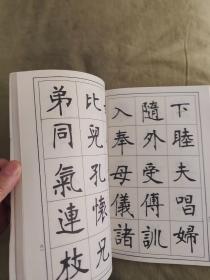 下睦夫唱婦
隨外受傅訓
入奉母儀諸
比兒孔懷兄
弟同氣連枝